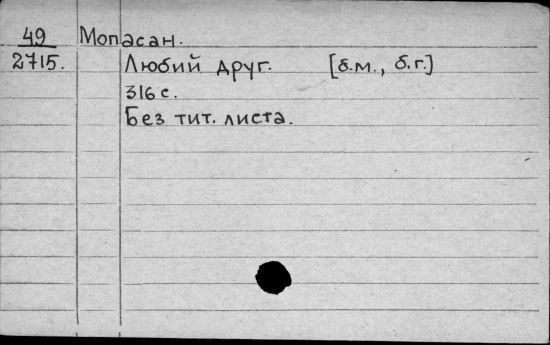 49 Мопасан.
2715. Любий друг. [б.м., б.г.]
316 с.
Без тит. листа.